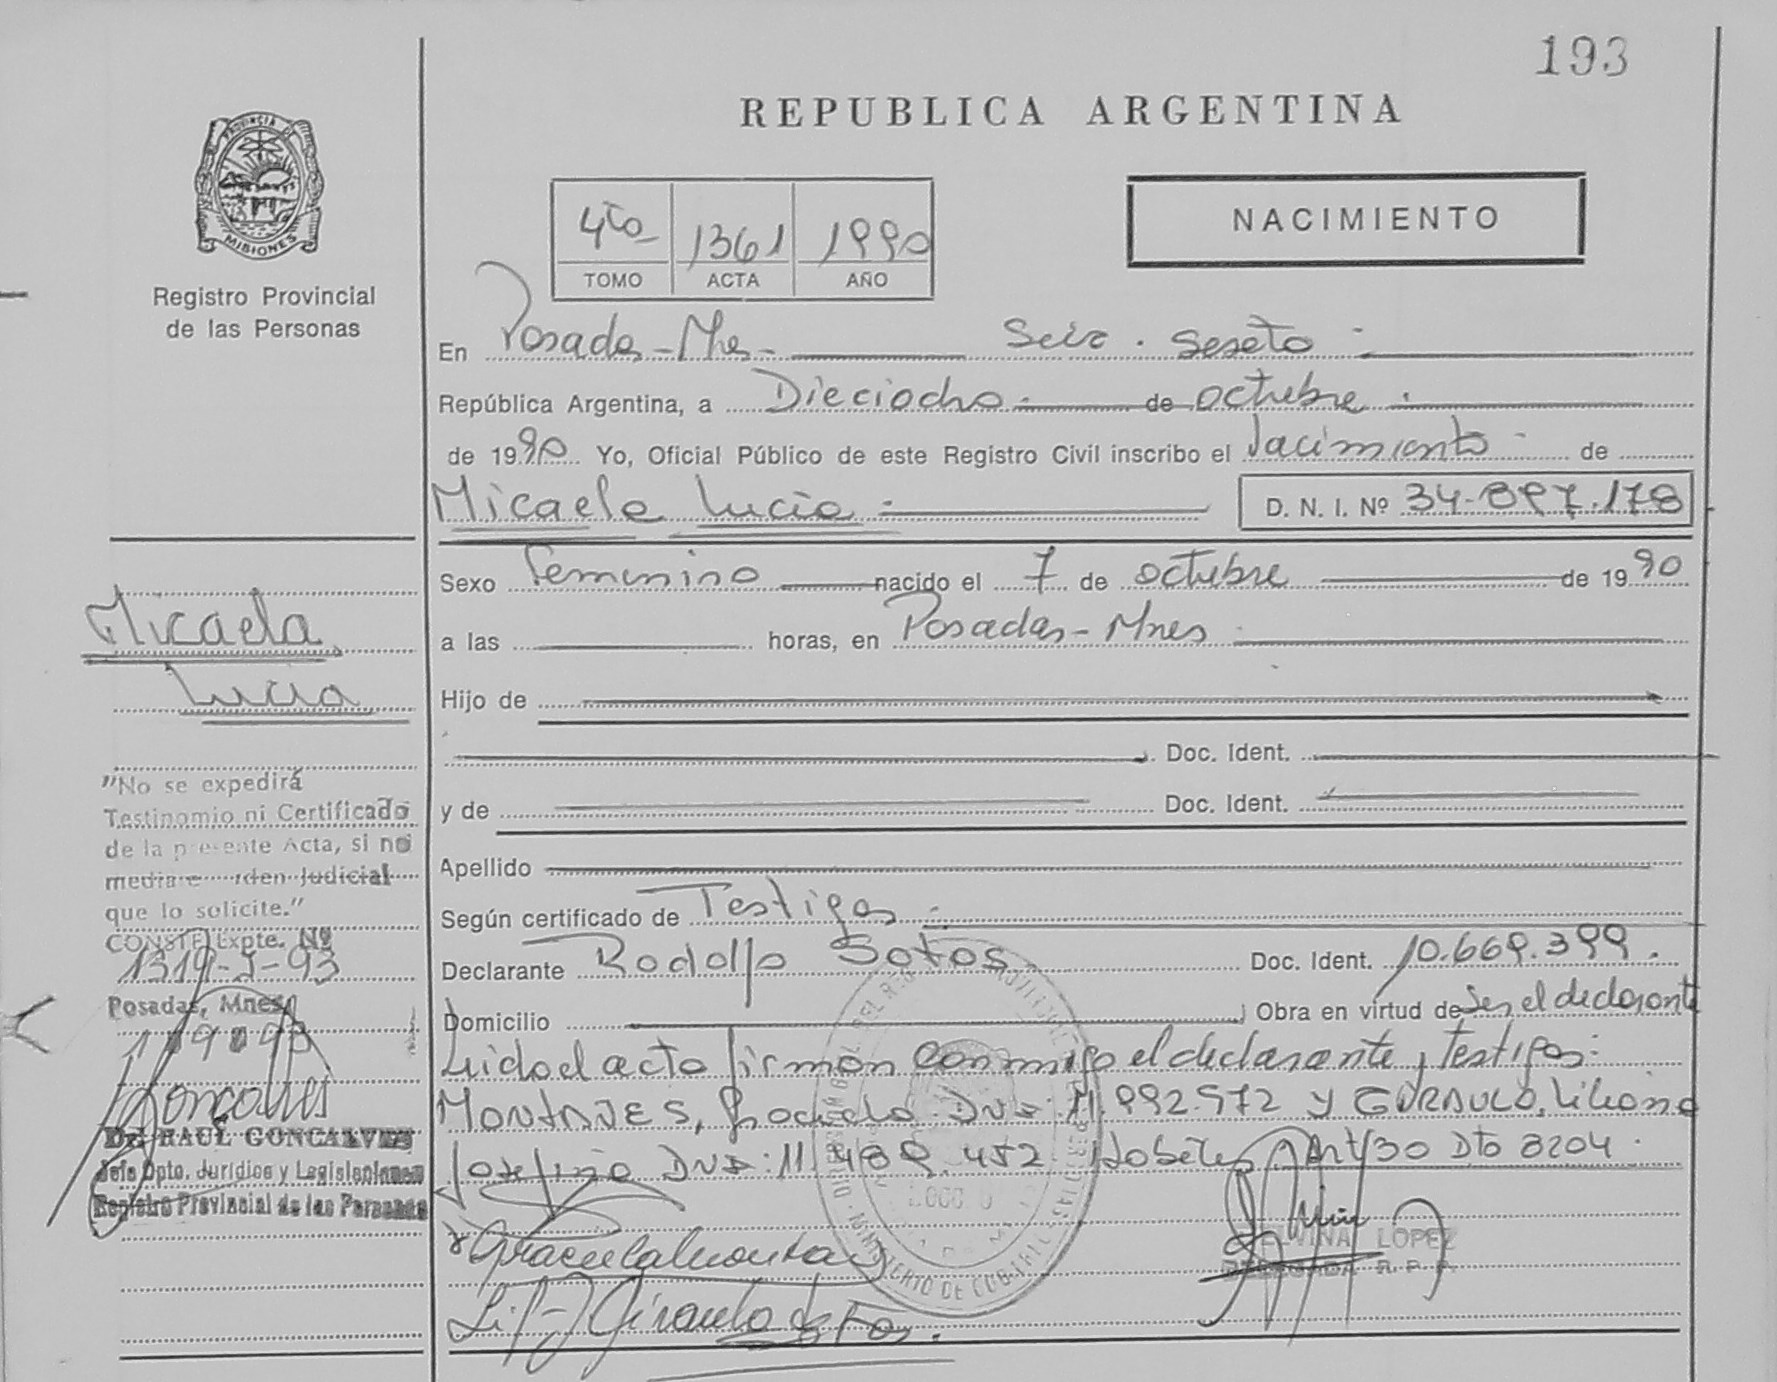 193
REPUBLICA ARGENTINA
PROVINCIA DE
MISIONES
Registro Provincial
de las Personas
4to 1361 1990
TOMO ACTA AÑO
NACIMIENTO
En Posadas - Mnes -
República Argentina, a Dieciocho - de octubre
de 1990 Yo, Oficial Público de este Registro Civil inscribo el Nacimiento - de
Micaela Lucia
D. N. I. Nº 34-897.178
Sexo Femenino nacido el 7 de octubre de 1990
a las horas, en Posadas - Mnes
Hijo de
Doc. Ident.
y de Doc. Ident.
Apellido
Según certificado de Testigos
Declarante Rodolfo Sotos Doc. Ident. 10.669.399.
Domicilio Obra en virtud de Ser el declarante
Leido el acto firman conmigo el declarante, testigos:
MONTAJES, Graciela DNI: 11.992.572 Y Liliana
Josefina DNI: 11.489.452 Art/30 Dto 8204.
ELVINA LOPEZ
DELEGADA R.P.P.
Micaela
Lucia
"No se expedirá
Testinomio ni Certificado
de la presente Acta, si no
media orden Judicial
que lo solicite."
CONSTE Expte. Nº
1319-J-93
Posadas, Mnes,
Dr. RAUL GONCALVES
Jefe Dpto. Jurídico y Legislaciones
Registro Provincial de las Personas